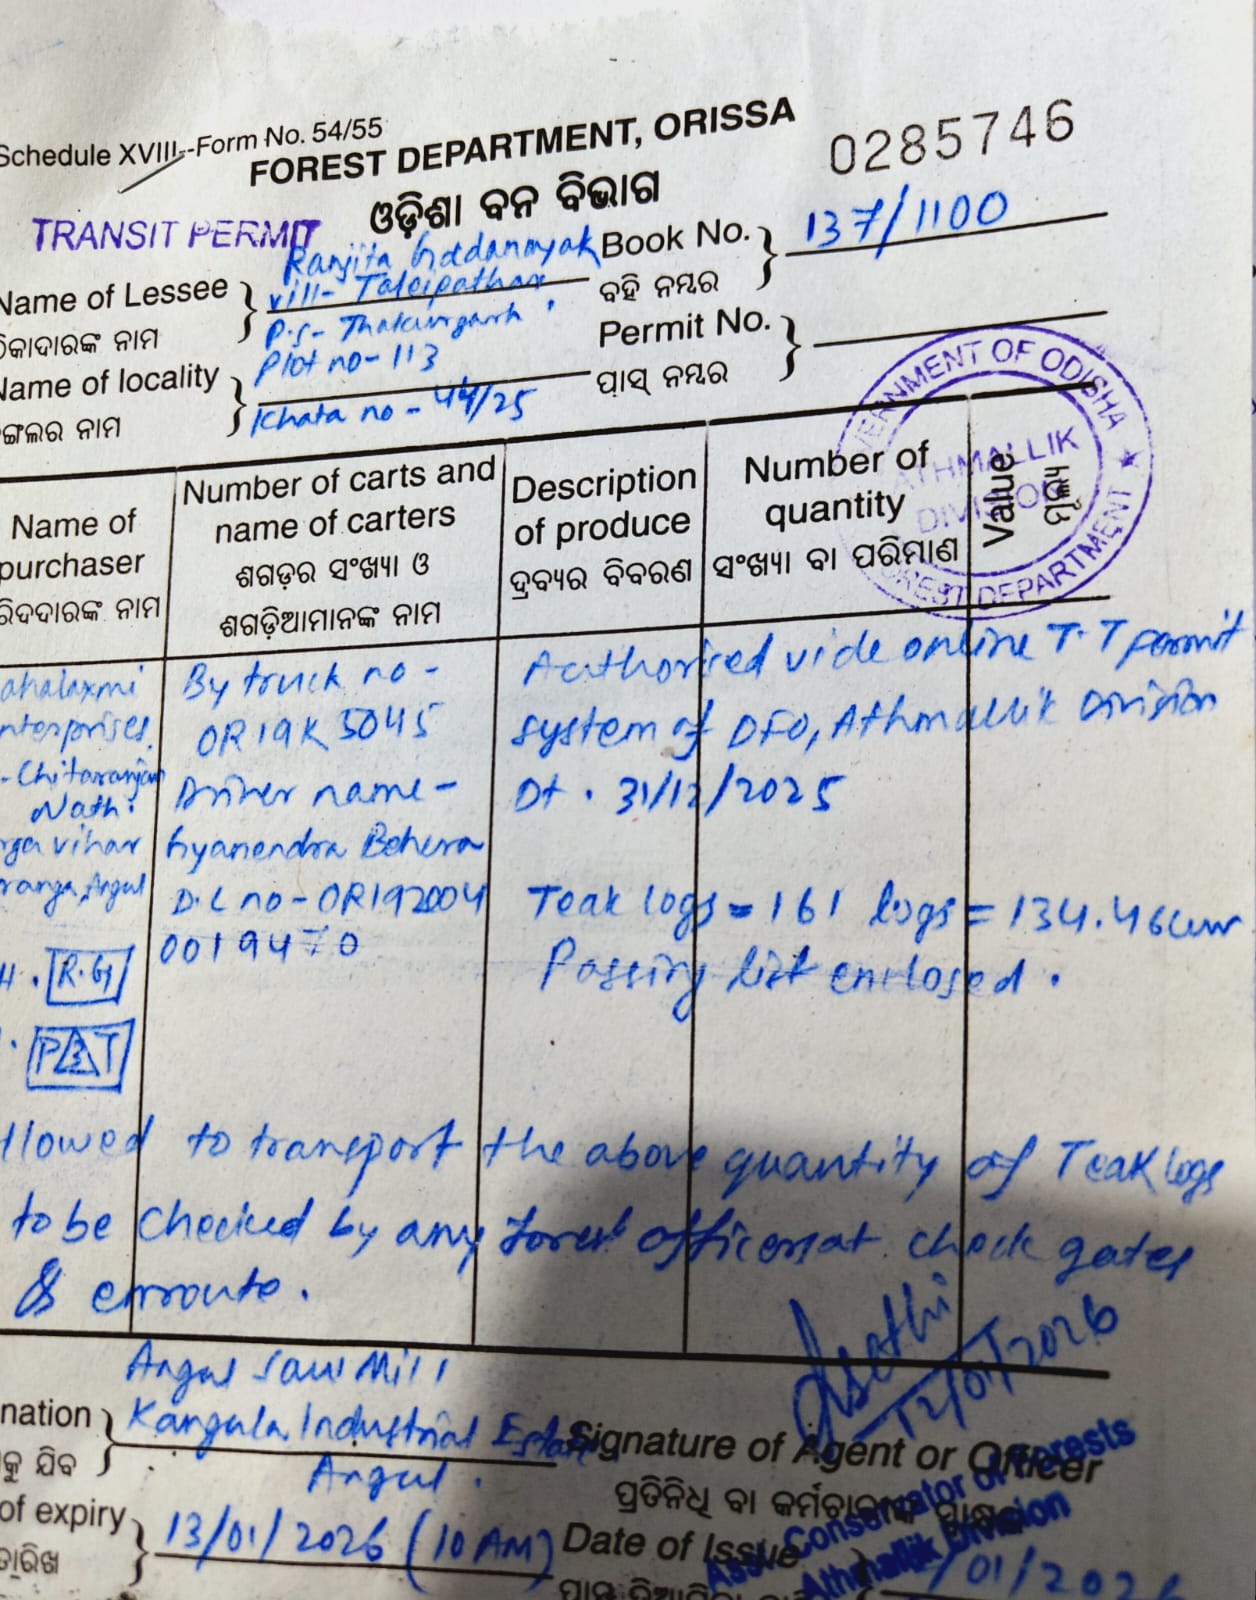 Schedule XVIII--Form No. 54/55
FOREST DEPARTMENT, ORISSA
0285746
ଓଡ଼ିଶା ବନ ବିଭାଗ
TRANSIT PERMIT
Name of Lessee
ଠିକାଦାରଙ୍କ ନାମ
Ranjita
vill- Taleipathar
P.s- Thakurgarh
Book No.
ବହି ନମ୍ବର
137/1100
Name of locality
ଙ୍ଗଲର ନାମ
Plot no- 113
Khata no - 44/25
Permit No.
ପାସ୍ ନମ୍ବର
GOVERNMENT OF ODISHA
ATHMALLIK
DIVISION
FOREST DEPARTMENT
Name of
purchaser
ରିଦଦାରଙ୍କ ନାମ
Number of carts and
name of carters
ଶଗଡ଼ର ସଂଖ୍ୟା ଓ
ଶଗଡ଼ିଆମାନଙ୍କ ନାମ
Description
of produce
ଦ୍ରବ୍ୟର ବିବରଣ
Number of
quantity
ସଂଖ୍ୟା ବା ପରିମାଣ
Value
ମୂଲ୍ୟ
ahalaxmi
nterprises.
- Chitaranjan
Nath.
rga vihar
ranga, Angul
H. R.G
P3T
By truck no -
OR19K 5045
Driver name -
Gyanendra Behera
D.L no - OR192004
0019470
Authorised vide online T.T permit
system of DFO, Athmallik Division
Dt. 31/12/2025
Teak logs = 161 logs = 134.46 cum
Passing list enclosed.
llowed to transport the above quantity of Teak logs
to be checked by any forest officers at check gates
& enroute.
nation
କୁ ଯିବ
Angul Saw Mill
Kangula Industrial Estate
Angul.
12/01/2026
Signature of Agent or Officer
ପ୍ରତିନିଧି ବା କର୍ମଚାରୀଙ୍କ ସ୍ୱାକ୍ଷର
Asst. Conservator of Forests
Athmallik Division
of expiry
ତାରିଖ
13/01/2026 (10 AM)
Date of Issue
/01/2026